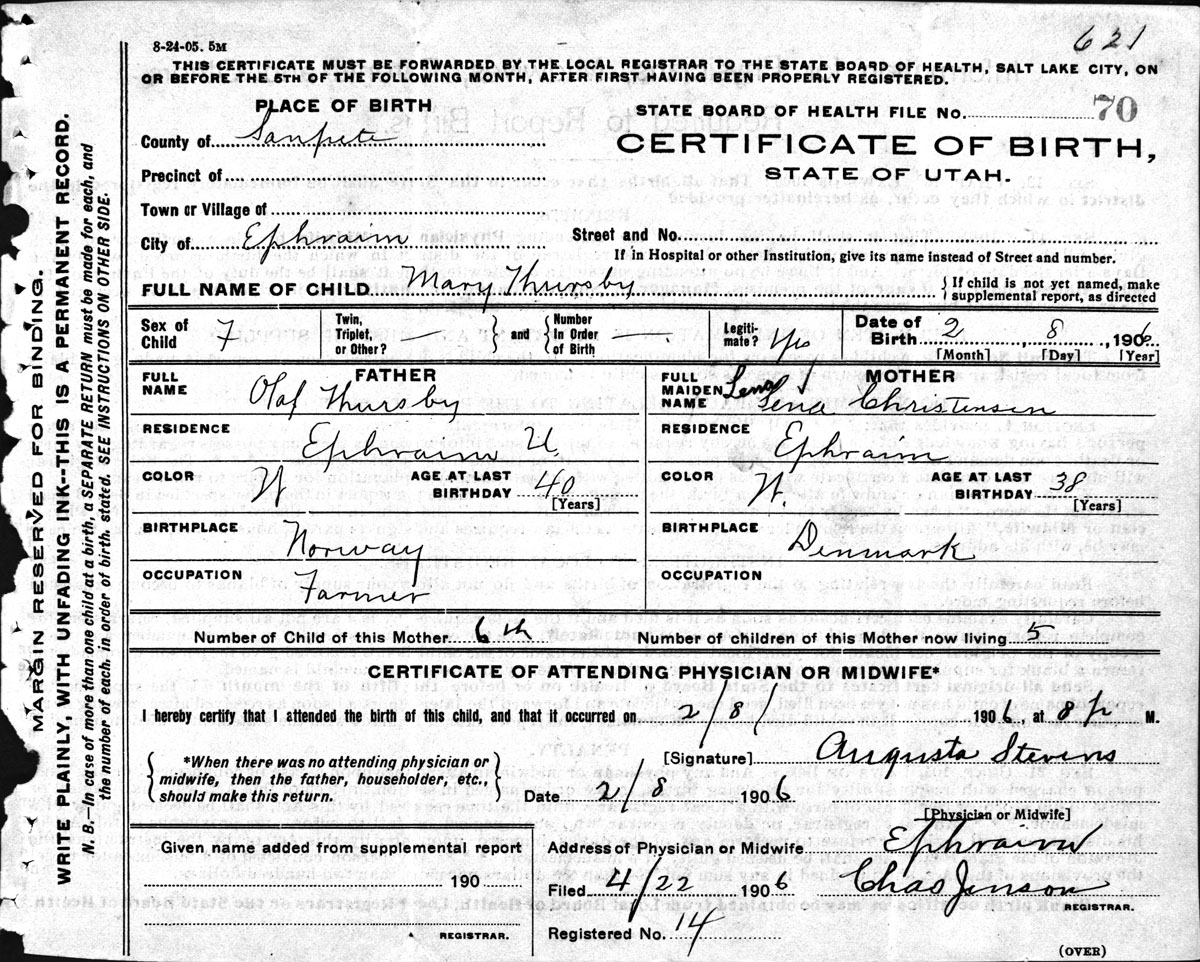 8-24-05. 5M
621
THIS CERTIFICATE MUST BE FORWARDED BY THE LOCAL REGISTRAR TO THE STATE BOARD OF HEALTH, SALT LAKE CITY, ON
OR BEFORE THE 5TH OF THE FOLLOWING MONTH, AFTER FIRST HAVING BEEN PROPERLY REGISTERED.
PLACE OF BIRTH
STATE BOARD OF HEALTH FILE No. 70
County of Sanpete
CERTIFICATE OF BIRTH,
Precinct of
STATE OF UTAH.
Town or Village of
City of Ephraim
Street and No.
If in Hospital or other Institution, give its name instead of Street and number.
FULL NAME OF CHILD Mary Thursby
{ If child is not yet named, make
supplemental report, as directed
Sex of
Child F
Twin,
Triplet,
or Other? —
} and {
Number
In Order
of Birth —
Legiti-
mate? Yes
Date of
Birth 2, 8, 1906
[Month] [Day] [Year]
FATHER
FULL
NAME Olaf Thursby
MOTHER
FULL
MAIDEN
NAME Lena Lena Christensen
RESIDENCE
Ephraim U.
RESIDENCE
Ephraim
COLOR W
AGE AT LAST
BIRTHDAY 40
[Years]
COLOR W.
AGE AT LAST
BIRTHDAY 38
[Years]
BIRTHPLACE
Norway
BIRTHPLACE
Denmark
OCCUPATION
Farmer
OCCUPATION
Number of Child of this Mother 6th
Number of children of this Mother now living 5
CERTIFICATE OF ATTENDING PHYSICIAN OR MIDWIFE*
I hereby certify that I attended the birth of this child, and that it occurred on 2/8/ 1906, at 8 p M.
*When there was no attending physician or
midwife, then the father, householder, etc.,
should make this return.
[Signature] Augusta Stevens
Date 2/8 1906
[Physician or Midwife]
Given name added from supplemental report
190
REGISTRAR.
Address of Physician or Midwife Ephraim
Filed 4/22 1906 Chas Janson
REGISTRAR.
Registered No. 14
(OVER)
MARGIN RESERVED FOR BINDING.
WRITE PLAINLY, WITH UNFADING INK--THIS IS A PERMANENT RECORD.
N. B.—In case of more than one child at a birth, a SEPARATE RETURN must be made for each, and
the number of each, in order of birth, stated. SEE INSTRUCTIONS ON OTHER SIDE.